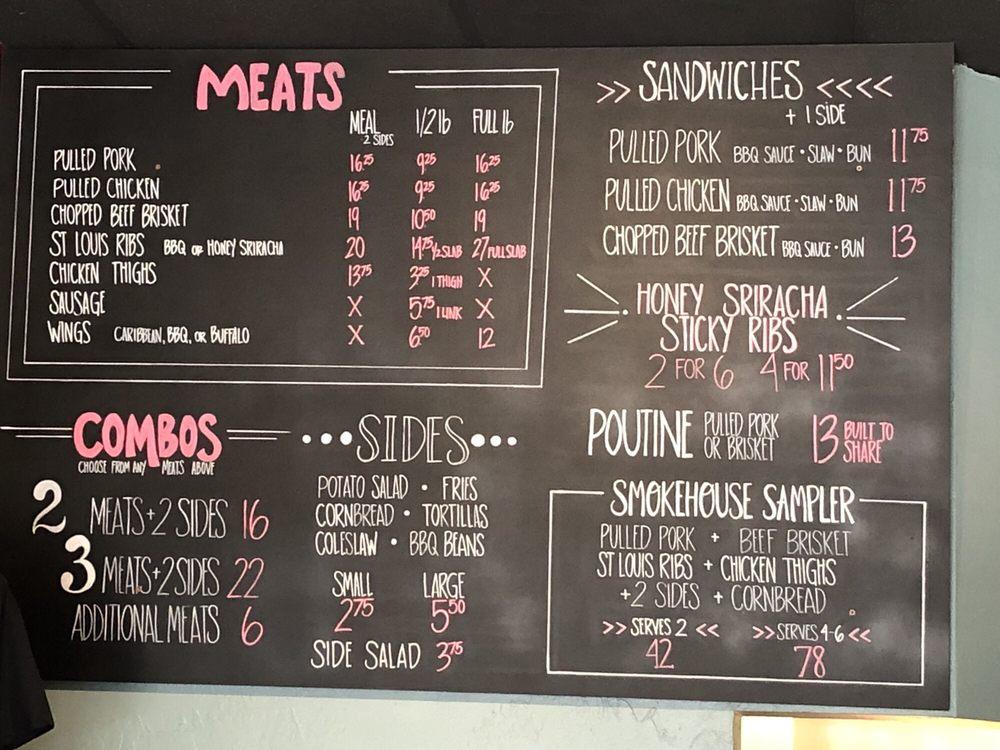 MEATS
MEAL 1/2 lb FULL lb
2 SIDES
PULLED PORK 16.25 9.25 16.25
PULLED CHICKEN 16.25 9.25 16.25
CHOPPED BEEF BRISKET 19 10.50 19
ST LOUIS RIBS BBQ OR HONEY SRIRACHA 20 14.75 1/2 SLAB 27 FULL SLAB
CHICKEN THIGHS 13.75 3.25 1 THIGH X
SAUSAGE X 5.75 1 LINK X
WINGS CARIBBEAN, BBQ, OR BUFFALO X 6.50 12
COMBOS
CHOOSE FROM ANY MEATS ABOVE
2 MEATS + 2 SIDES 16
3 MEATS + 2 SIDES 22
ADDITIONAL MEATS 6
•••SIDES•••
POTATO SALAD • FRIES
CORNBREAD • TORTILLAS
COLESLAW • BBQ BEANS
SMALL LARGE
2.75 5.50
SIDE SALAD 3.75
>> SANDWICHES <<<<
+ 1 SIDE
PULLED PORK BBQ SAUCE • SLAW • BUN 11.75
PULLED CHICKEN BBQ SAUCE • SLAW • BUN 11.75
CHOPPED BEEF BRISKET BBQ SAUCE • BUN 13
HONEY SRIRACHA
STICKY RIBS
2 FOR 6 4 FOR 11.50
POUTINE PULLED PORK OR BRISKET 13 BUILT TO SHARE
SMOKEHOUSE SAMPLER
PULLED PORK + BEEF BRISKET
ST LOUIS RIBS + CHICKEN THIGHS
+2 SIDES + CORNBREAD
>> SERVES 2 << >> SERVES 4-6 <<
42 78